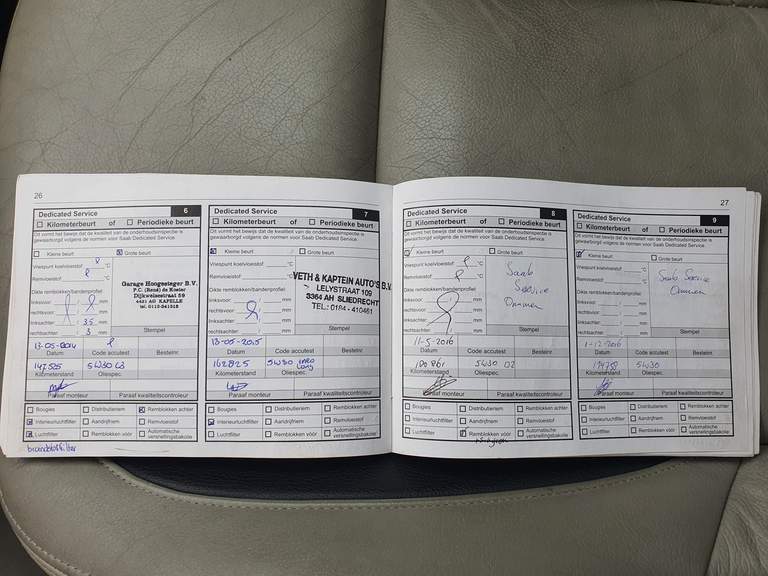 26
Dedicated Service 6
Kilometerbeurt of Periodieke beurt
Dit vormt het bewijs dat de kwaliteit van de onderhoudsinspectie is
gewaarborgd volgens de normen voor Saab Dedicated Service.
Kleine beurt Grote beurt
Vriespunt koelvloeistof °C
Remvloeistof °C
Dikte remblokken/bandenprofiel
linksvoor: / mm
rechtsvoor: / mm
linksachter: / 35 mm
rechtsachter: / 3 mm
Garage Hoogesteger B.V.
P.C. (René) de Koster
Dijkwelsestraat 59
4421 AS KAPELLE
tel. 0113-341318
Stempel
13-05-2014
Datum Code accutest Bestelnr.
147525 5W30 C3
Kilometerstand Oliespec.
Paraaf monteur Paraaf kwaliteitscontroleur
Bougies Distributieriem Remblokken achter
Interieurluchtfilter Aandrijfriem Remvloeistof
Luchtfilter Remblokken vóór Automatische versnellingsbakolie
brandstoffilter
Dedicated Service 7
Kilometerbeurt of Periodieke beurt
Dit vormt het bewijs dat de kwaliteit van de onderhoudsinspectie is
gewaarborgd volgens de normen voor Saab Dedicated Service.
Kleine beurt Grote beurt
Vriespunt koelvloeistof °C
Remvloeistof °C
Dikte remblokken/bandenprofiel
linksvoor: / mm
rechtsvoor: / mm
linksachter: / mm
rechtsachter: / mm
VETH & KAPTEIN AUTO'S B.V.
LELYSTRAAT 109
3364 AH SLIEDRECHT
TEL.: 0184 - 410461
Stempel
13-05-2015
Datum Code accutest Bestelnr.
162825 5W30
Kilometerstand Oliespec.
Paraaf monteur Paraaf kwaliteitscontroleur
Bougies Distributieriem Remblokken achter
Interieurluchtfilter Aandrijfriem Remvloeistof
Luchtfilter Remblokken vóór Automatische versnellingsbakolie
27
Dedicated Service 8
Kilometerbeurt of Periodieke beurt
Dit vormt het bewijs dat de kwaliteit van de onderhoudsinspectie is
gewaarborgd volgens de normen voor Saab Dedicated Service.
Kleine beurt Grote beurt
Vriespunt koelvloeistof °C
Remvloeistof °C
Dikte remblokken/bandenprofiel
linksvoor: / mm
rechtsvoor: / mm
linksachter: / mm
rechtsachter: / mm
Saab
Service
Ommen
Stempel
11-5-2016
Datum Code accutest Bestelnr.
180861 5W30
Kilometerstand Oliespec.
Paraaf monteur Paraaf kwaliteitscontroleur
Bougies Distributieriem Remblokken achter
Interieurluchtfilter Aandrijfriem Remvloeistof
Luchtfilter Remblokken vóór Automatische versnellingsbakolie
Dedicated Service 9
Kilometerbeurt of Periodieke beurt
Dit vormt het bewijs dat de kwaliteit van de onderhoudsinspectie is
gewaarborgd volgens de normen voor Saab Dedicated Service.
Kleine beurt Grote beurt
Vriespunt koelvloeistof °C
Remvloeistof °C
Dikte remblokken/bandenprofiel
linksvoor: / mm
rechtsvoor: / mm
linksachter: / mm
rechtsachter: / mm
Saab Service
Ommen
Stempel
1-12-2016
Datum Code accutest Bestelnr.
5W30
Kilometerstand Oliespec.
Paraaf monteur Paraaf kwaliteitscontroleur
Bougies Distributieriem Remblokken achter
Interieurluchtfilter Aandrijfriem Remvloeistof
Luchtfilter Remblokken vóór Automatische versnellingsbakolie